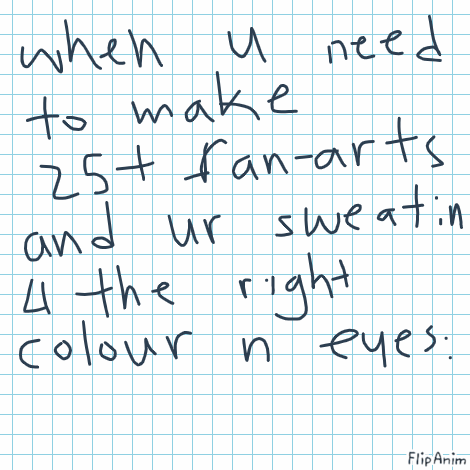 when u need
to make
25+ fan-arts
and ur sweatin
4 the right
colour n eyes:
FlipAnim